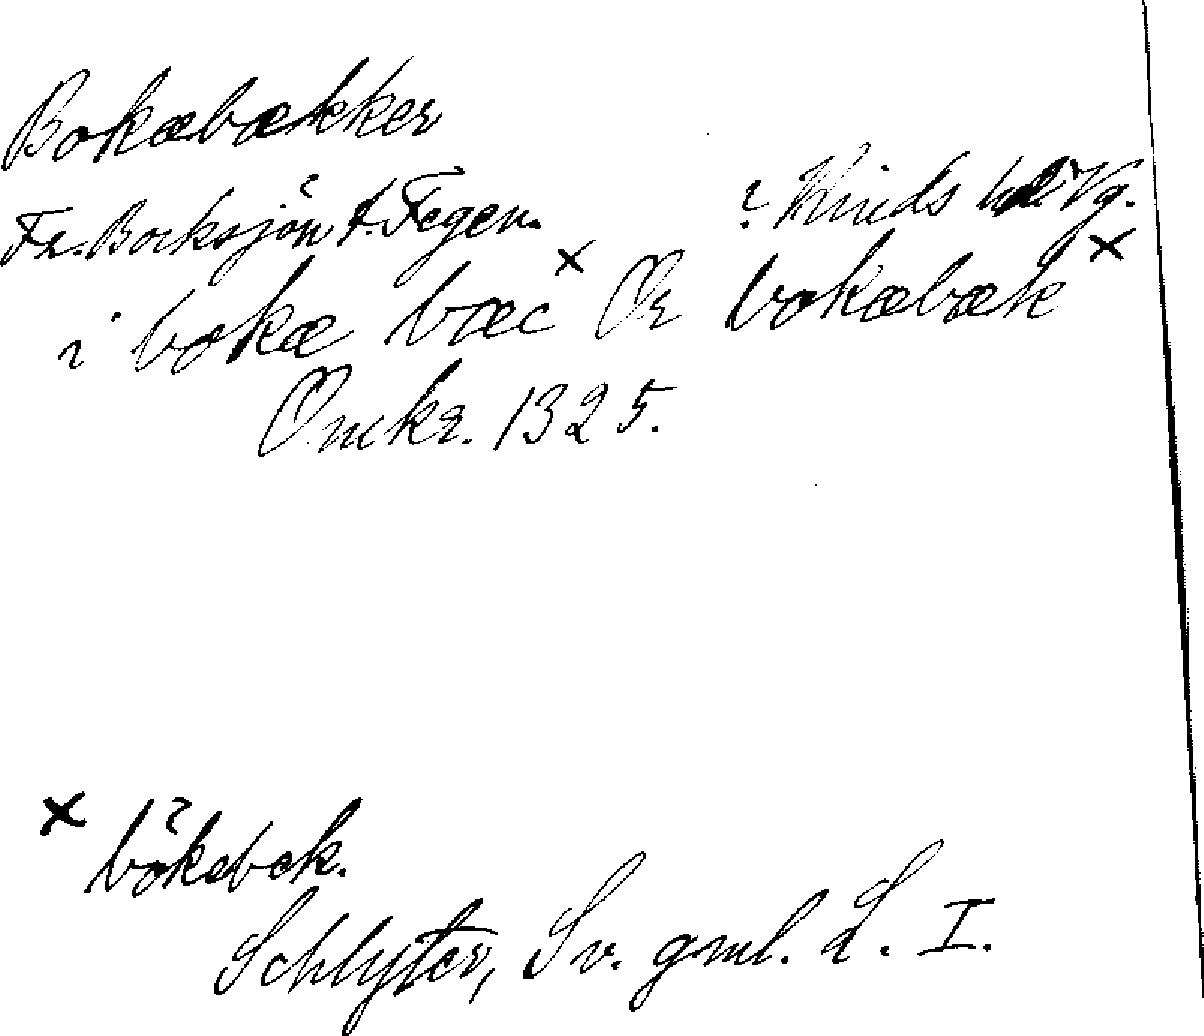 Bokæbækker
Fr. Bocksjön t. Fegen. ? Kinds hd Vg.
i bokæ bæc × Or bokæbæk ×
Omkr. 1325.
× bökebek.
Schlyter, Sv. gml. L. I.